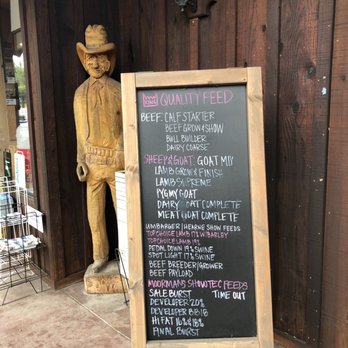 QUALITY FEED
BEEF: CALF STARTER
BEEF GROW & SHOW
BULL BUILDER
DAIRY COARSE
SHEEP & GOAT: GOAT MIX
LAMB GROW & FINISH
LAMB SUPREME
PYGMY GOAT
DAIRY GOAT COMPLETE
MEAT GOAT COMPLETE
UMBARGER/HEARNE SHOW FEEDS
TOP CHOICE LAMB 17% W/BARLEY
TOP CHOICE LAMB 19%
PEDAL DOWN 19% SWINE
SPOT LIGHT 17% SWINE
BEEF BREEDER/GROWER
BEEF PAYLOAD
MOORMANS SHOWTEC FEEDS
SALE BURST TIME OUT
DEVELOPER 20%
DEVELOPER 818 18
HI FAT 16% & 18%
FINAL BURST